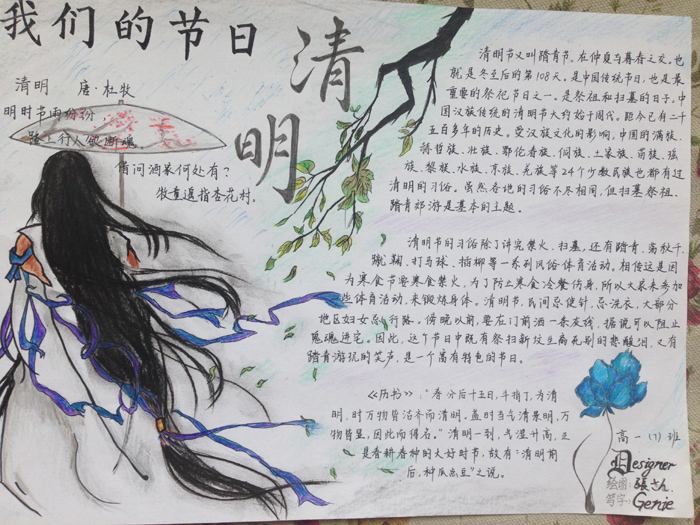 我们的节日
清明
清明 唐·杜牧
明时节雨纷纷
路上行人欲断魂
借问酒家何处有?
牧童遥指杏花村。
清明节又叫踏青节。在仲夏与暮春之交,也
就是冬至后的第108天。是中国传统节日,也是最
重要的祭祀节日之一。是祭祖和扫墓的日子。中
国汉族传统的清明节大约始于周代,距今已有二千
五百多年的历史。受汉族文化的影响,中国的满族、
赫哲族、壮族、鄂伦春族、侗族、土家族、苗族、瑶
族、黎族、水族、京族、羌族等24个少数民族也都有过
清明的习俗。虽然各地的习俗不尽相同,但扫墓祭祖、
踏青郊游是基本的主题。
清明节的习俗除了讲究禁火、扫墓,还有踏青、荡秋千、
蹴鞠、打马球、插柳等一系列风俗体育活动。相传这是因
为寒食节要寒食禁火,为了防止寒食冷餐伤身,所以大家来参加
些体育活动,来锻炼身体。清明节,民间忌使针,忌洗衣,大部分
地区妇女忌行路。傍晚以前,要在门前洒一条灰线,据说可以阻止
鬼魂进宅。因此,这个节日中既有祭扫新坟生离死别的悲酸泪,又有
踏青游玩的笑声,是一个富有特色的节日。
《历书》:"春分后十五日,斗指丁,为清
明,时万物皆洁齐而清明,盖时当气清景明,万
物皆显,因此而得名。"清明一到,气温升高,正
是春耕春种的大好时节,故有"清明前
后,种瓜点豆"之说。
高一(7)班
Designer
绘图:張
写字:Genie